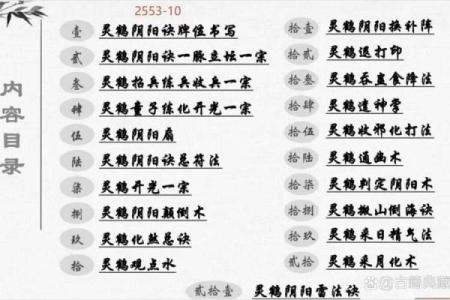 2553-10
内容目录
壹 灵鹤阴阳诀牌位书写
贰 灵鹤阴阳诀一脉立坛一宗
叁 灵鹤招兵练兵收兵一宗
肆 灵鹤童子练化开光一宗
伍 灵鹤阴阳扇
陆 灵鹤阴阳诀总符法
柒 灵鹤开光一宗
捌 灵鹤阴阳颠倒术
玖 灵鹤化煞总诀
拾 灵鹤观点水
拾壹 灵鹤阴阳换补阵
拾贰 灵鹤退打印
拾叁 灵鹤吞直食降法
拾肆 灵鹤遣神学
拾伍 灵鹤收邪化打法
拾陆 灵鹤通幽术
拾柒 灵鹤判定阴阳术
拾捌 灵鹤搬山倒海诀
拾玖 灵鹤采日精气法
贰拾 灵鹤采月化术
贰拾壹 灵鹤阴阳雷法诀
古籍典藏